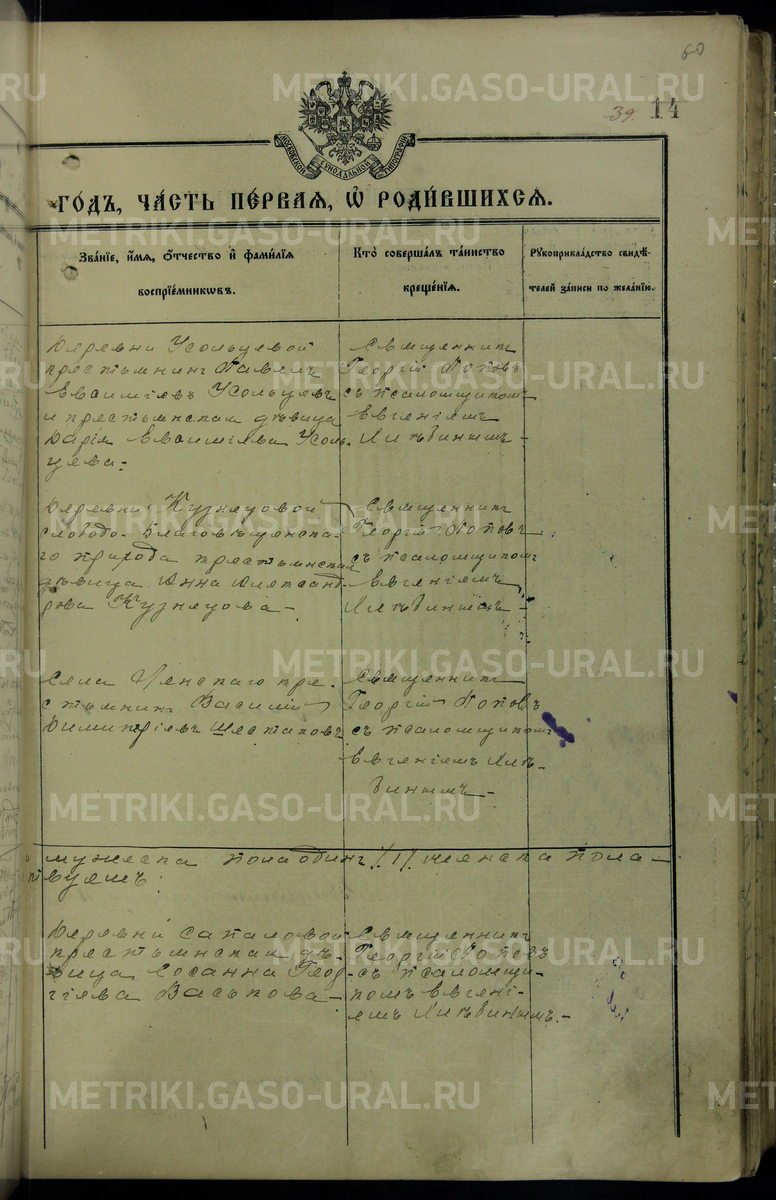 60
39. 14
МОСКОВСКОЙ СѴНОДАЛЬНОЙ ТИПОГРАФІИ
ГОДЪ, ЧАСТЬ ПЕРВАЯ, Ѡ РОДИВШИХСЯ.
Званіе, имя, отчество и фамилія
воспріемниковъ.
Кто совершалъ таинство
крещенія.
Рукоприкладство свидѣ-
телей записи по желанію.
Деревни Усольцевой
крестьянинъ Павелъ
Евѳиміевъ Усольцевъ
и крестьянская дѣвица
Дарія Евѳиміева Усоль
цева.
Священникъ
Георгій Поповъ
съ псаломщикомъ
Евгеніемъ
Хлѣбинымъ -
Деревни Кузнецовой
слободо-Благовѣщенска-
го прихода крестьянская
дѣвица Анна Александ-
рова Кузнецова -
Священникъ
Георгій Поповъ
съ псаломщикомъ
Евгеніемъ
Хлѣбинымъ -
Села кре-
стьянинъ Василій
Димитріевъ Шестаковъ
Священникъ
Георгій Поповъ
съ псаломщикомъ
Евгеніемъ Хлѣ-
бинымъ -
мужеска пола одинъ /1/, женска пола -
Деревни
крестьянская дѣ-
вица Сосанна Геор-
гіева Васькова -
Священникъ
Георгій Поповъ
съ псаломщи-
комъ Евгені-
емъ Хлѣбинымъ. -
METRIKI.GASO-URAL.RU